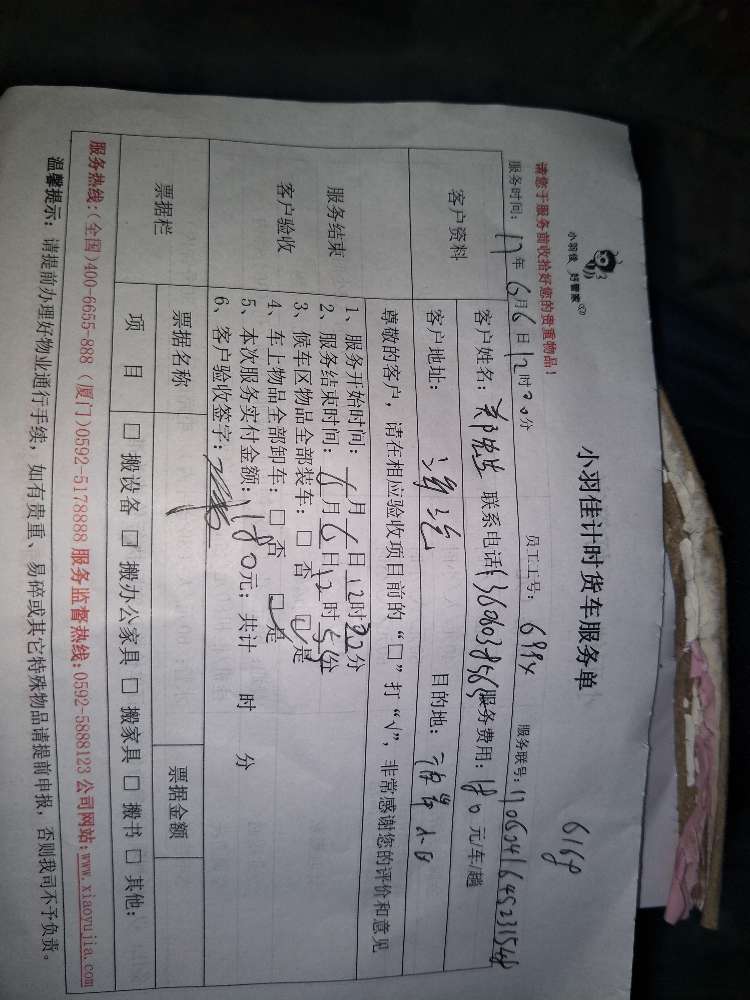 小羽佳 好管家
小羽佳计时货车服务单
616P
请您于服务前收拾好您的贵重物品!
服务时间: 17年 6月 6日 12时20分 员工工号: 699X 服务联号:
客户资料
客户姓名: 联系电话: 服务费用: 180 元/车/趟
客户地址: 目的地:
尊敬的客户, 请在相应验收项目前的“□”打“√”, 非常感谢您的评价和意见
服务结束
客户验收
1、服务开始时间: 6月 6日 12时 分
2、服务结束时间: 6月 6日 12时 分
3、候车区物品全部装车: □ 否 ☑ 是
4、车上物品全部卸车: □ 否 ☑ 是
5、本次服务实付金额: 180元; 共计 时 分
6、客户验收签字:
票据栏
票据名称 票据金额
项 目 □ 搬设备 □ 搬办公家具 □ 搬家具 □ 搬书 □ 其他:
服务热线:(全国)400-6655-888 (厦门)0592-5178888 服务监督热线:0592-5888123 公司网站:www.xiaoyujia.com
温馨提示: 请提前办理好物业通行手续, 如有贵重、易碎或其它特殊物品请提前申报, 否则我司不予负责。